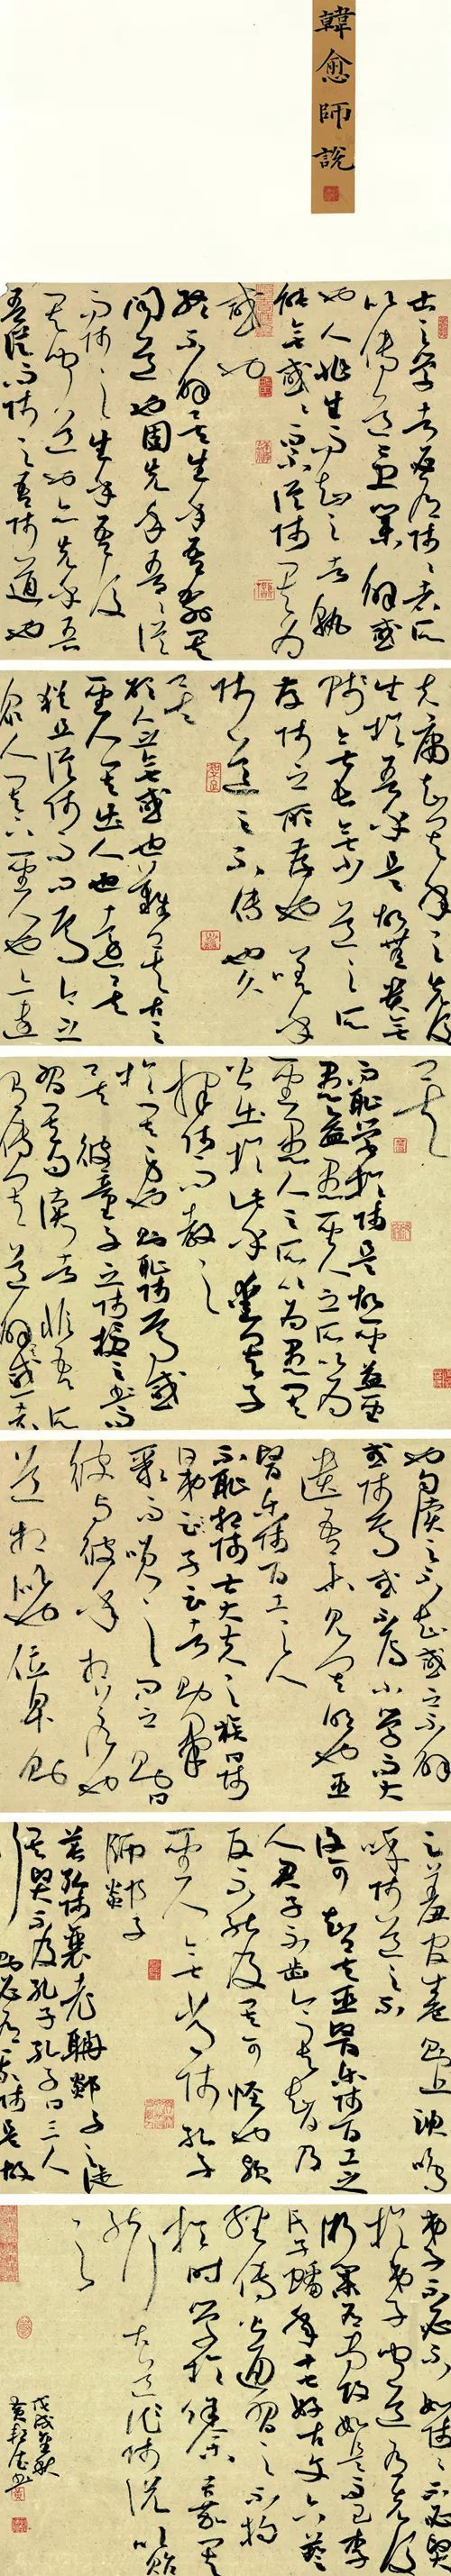 韓愈師說
古之學者必有師師者所
以傳道受業解惑
也人非生而知之者孰
能無惑惑而不從師其為
惑也
終不解矣生乎吾前其
聞道也固先乎吾吾從
而師之生乎吾後
其聞道也亦先乎吾
吾從而師之吾師道也
夫庸知其年之先後
生於吾乎是故無貴無
賤無長無少道之所
存師之所存也嗟乎
師道之不傳也久
矣
欲人之無惑也難矣古之
聖人其出人也遠矣
猶且從師而問焉今之
眾人其下聖人也亦遠
矣
而恥學於師是故聖益聖
愚益愚聖人之所以為
聖愚人之所以為愚其
皆出於此乎愛其子
擇師而教之
於其身也則恥師焉惑
矣彼童子之師授之書而
習其句讀者非吾所
謂傳其道解其惑者
也句讀之不知惑之不解
或師焉或不焉小學而大
遺吾未見其明也巫
醫樂師百工之人
不恥相師士大夫之族曰師
曰弟子云者則群
聚而笑之問之則曰
彼與彼年相若也
道相似也位卑則
足羞官盛則近諛嗚
呼師道之不
復可知矣巫醫樂師百工之
人君子不齒今其智乃
反不能及其可怪也歟
聖人無常師孔子
師郯子
萇弘師襄老聃郯子之徒
其賢不及孔子孔子曰三人
行則必有我師是故
弟子不必不如師師不必賢
於弟子聞道有先後
術業有專攻如是而已李
氏子蟠年十七好古文六藝
經傳皆通習之不拘
於時學於余余嘉其
能行古道作師說以貽
之
戊戌秋